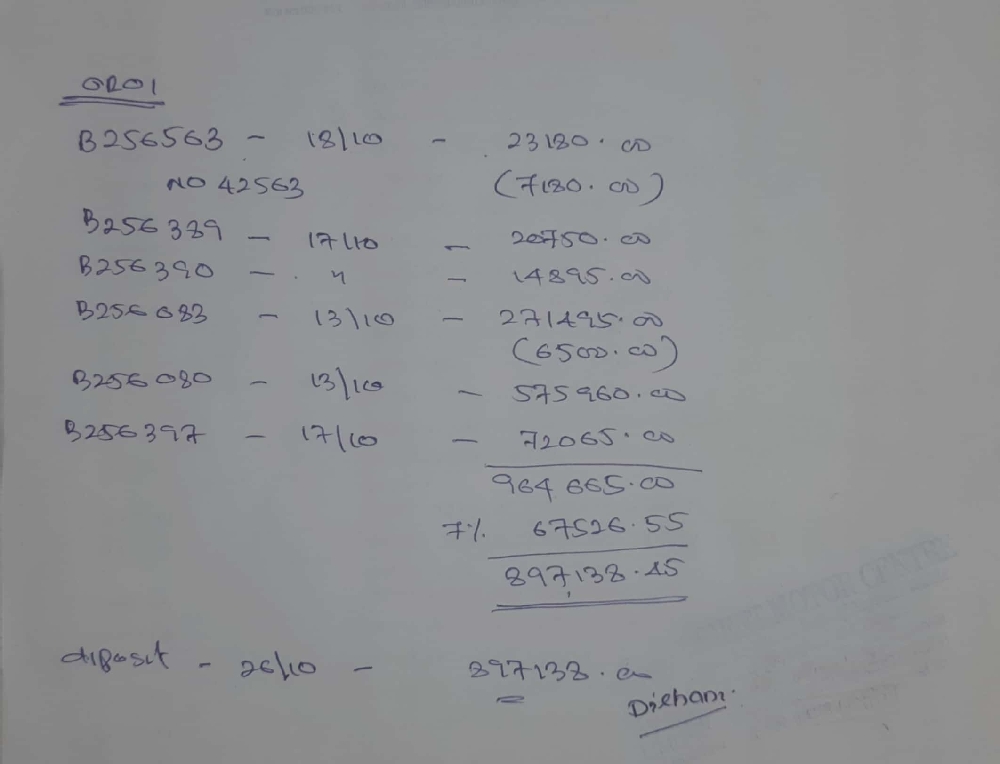 ORO1
B256563 - 18/10 - 23180.00
NO 42563 (7180.00)
B256389 - 17/10 - 20750.00
B256390 - " - 14895.00
B256083 - 13/10 - 271495.00
(6500.00)
B256080 - 13/10 - 575960.00
B256397 - 17/10 - 72065.00
964665.00
7% 67526.55
897,138.45
MOTOR CENTRE
diposit - 26/10 - 897138.00
Dilhani.